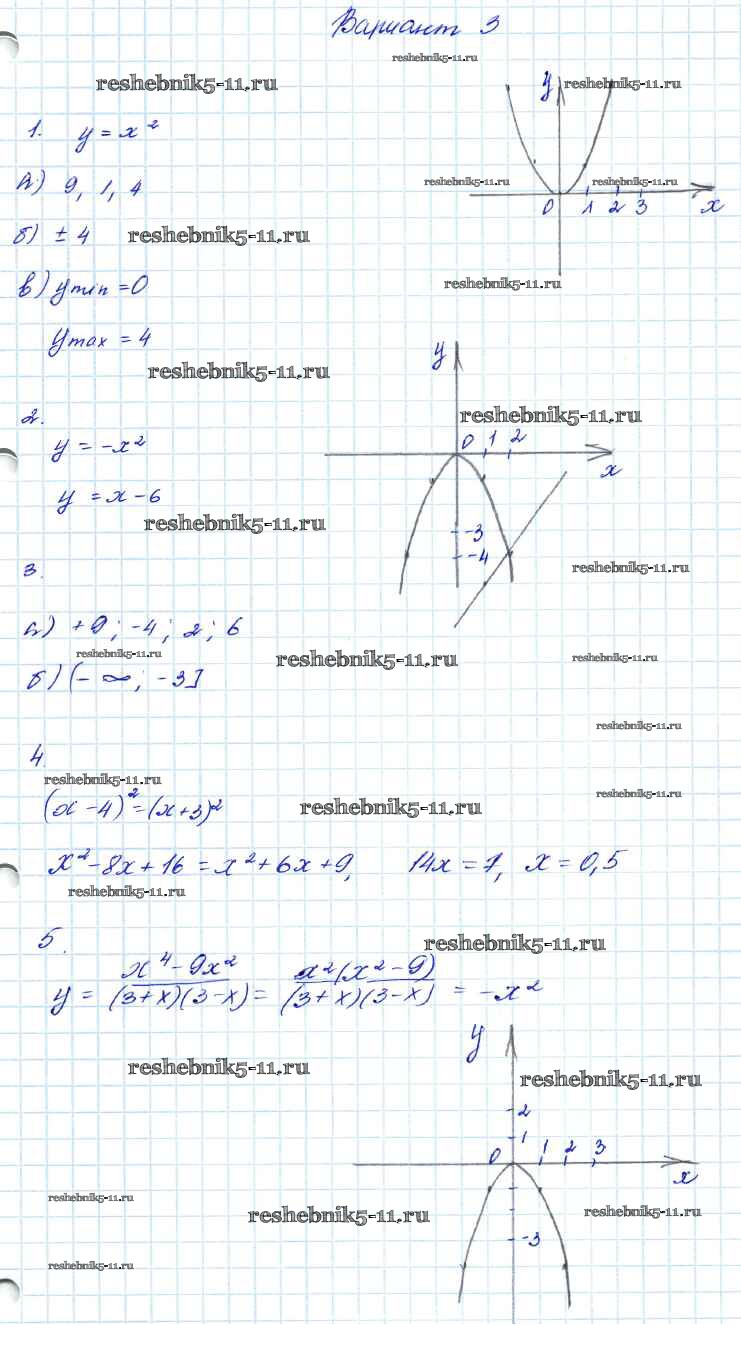 Вариант 3
reshebnik5-11.ru
reshebnik5-11.ru
y
reshebnik5-11.ru
1. y = x²
а) 9, 1, 4
reshebnik5-11.ru
reshebnik5-11.ru
0 1 2 3 x
б) ± 4
reshebnik5-11.ru
в) ymin = 0
reshebnik5-11.ru
ymax = 4
y
reshebnik5-11.ru
2.
reshebnik5-11.ru
y = -x²
0 1 2
x
y = x - 6
reshebnik5-11.ru
-3
-4
3.
reshebnik5-11.ru
а) +9; -4; 2; 6
reshebnik5-11.ru
reshebnik5-11.ru
reshebnik5-11.ru
б) (-∞; -3]
reshebnik5-11.ru
4.
reshebnik5-11.ru
reshebnik5-11.ru
(x - 4)² = (x + 3)²
reshebnik5-11.ru
x² - 8x + 16 = x² + 6x + 9, 14x = 7, x = 0,5
reshebnik5-11.ru
5.
reshebnik5-11.ru
y = x⁴ - 9x² / (3 + x)(3 - x) = x²(x² - 9) / (3 + x)(3 - x) = -x²
y
reshebnik5-11.ru
reshebnik5-11.ru
2
1
0 1 2 3
x
reshebnik5-11.ru
reshebnik5-11.ru
reshebnik5-11.ru
-3
reshebnik5-11.ru